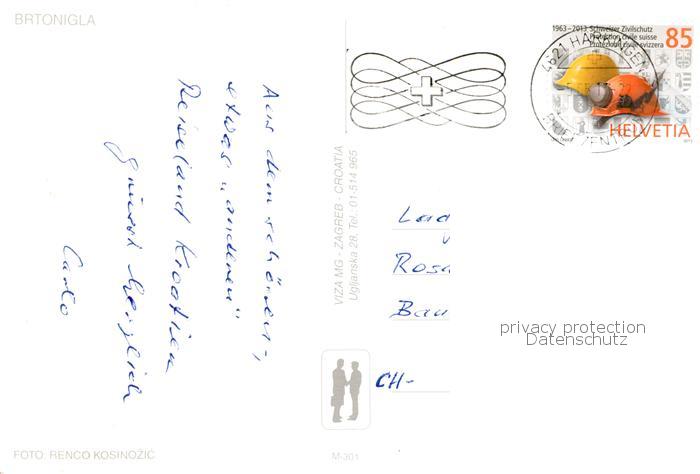 BRTONIGLA
1963-2013 Schweizer Zivilschutz
Protection civile suisse
Protezione civile svizzera
85
HELVETIA
4621 HÄRKINGEN
BRIEFZENTRUM
Aus dem schönen,
etwas „anderen"
Reiseland Kroatien
grüsst herzlich
Carlo
VIZA MG - ZAGREB - CROATIA
Ugljanska 28, Tel.: 01-514 965
Lad
Rosa
Bau
CH-
privacy protection
Datenschutz
FOTO: RENCO KOSINOŽIĆ
M-301